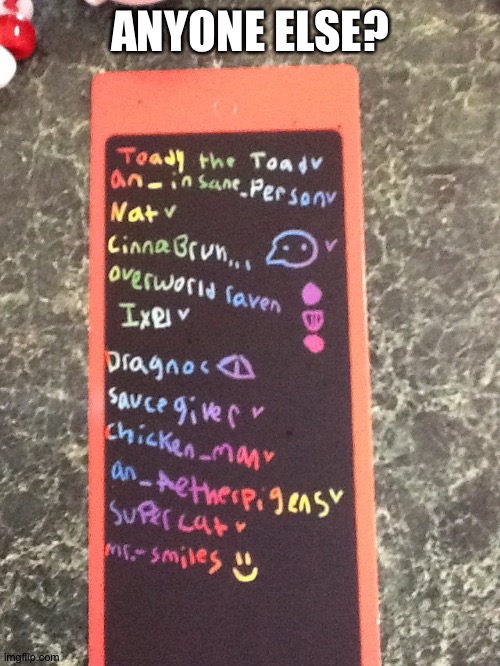 ANYONE ELSE?
Toady the Toad
an_insane_Person
Nat
CinnaBrun...
overworld raven
Ixel
Dragnoc
saucegiver
chicken_man
an_Aetherpigens
supercat
mr.-smiles
imgflip.com